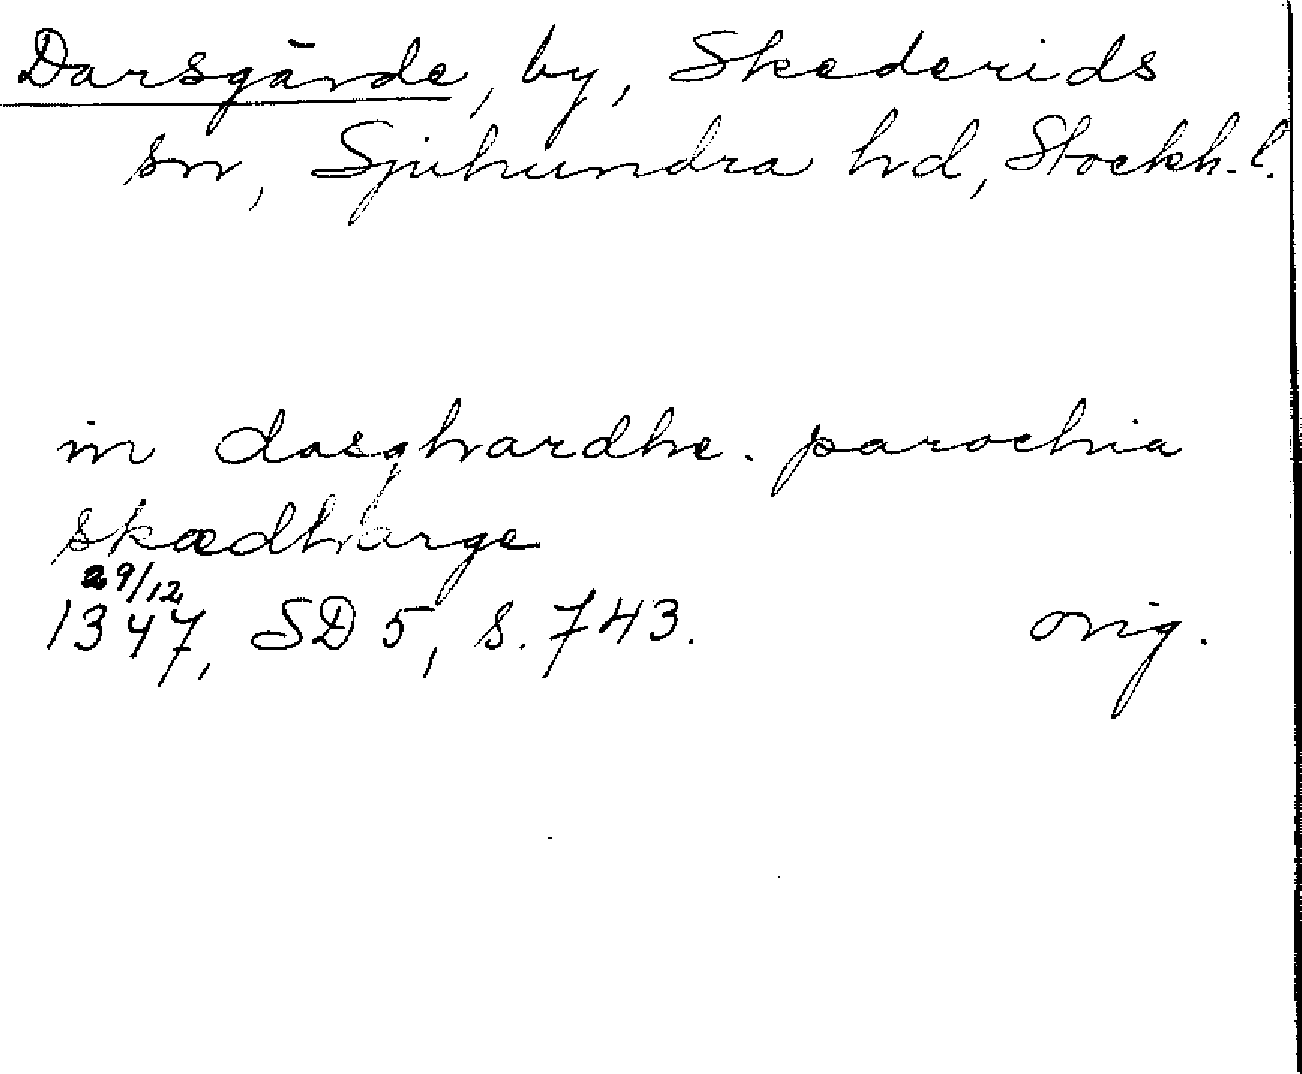 Darsgärde, by, Skederids
sn, Sjuhundra hd, Stockh. l.
in dasghardhe. parochia
skædharge
29/12
1347, SD 5, s. 743. orig.